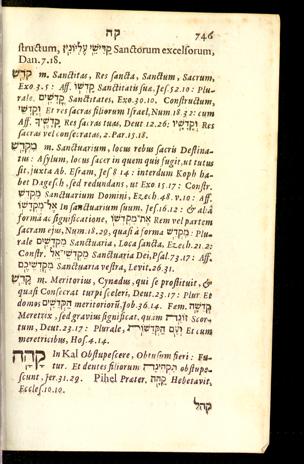 קה 746
structum, קַדִּישֵׁי עֶלְיוֹנִין Sanctorum excelsorum,
Dan. 7.18.
קֹדֶשׁ m. Sanctitas, Res sancta, Sanctum, Sacrum,
Exo 3.5: Aff. קָדְשׁוֹ Sanctitatis suæ, Jes. 52.10: Plu-
rale. קָדָשִׁים Sanctitates, Exo. 30.10. Constructum,
וְקָדְשֵׁי Et res sacras filiorum Israel, Num. 18.32: cum
Aff. קָדָשֶׁיךָ Res sacras tuas, Deut 12.26: וְקָדָשָׁיו Res
sacras vel consecratas, 2. Par. 15.18.
מִקְדָּשׁ m. Sanctuarium, locus rebus sacris Destina-
tus: Asylum, locus sacer in quem quis fugit, ut tutus
sit, juxta Ab. Esram, Jes 8 14: interdum Koph ha-
bet Dagesch, sed redundans, ut Exo 15.17: Constr.
מִקְדַּשׁ Sanctuarium Domini, Ezech. 48. v. 10: Aff.
אֶל מִקְדָּשׁוֹ In sanctuarium suum, Jes. 16.12: & aliâ
forma ac significatione, אֶת־מִקְדְּשׁוֹ Rem vel partem
sacram ejus, Num. 18.29, quasi â forma מִקְדֵּשׁ: Plu-
rale מִקְדָּשִׁים Sanctuaria, Loca sancta, Ezech. 21.2:
Constr. מִקְדְּשֵׁי־אֵל Sanctuaria Dei, Psal. 73.17: Aff.
מִקְדְּשֵׁיכֶם Sanctuaria vestra, Levit. 26.31.
קָדֵשׁ m. Meritorius, Cynædus, qui se prostituit, &
quasi Consecrat turpi sceleri, Deut. 23.17: Plur. Et
domos הַקְּדֵשִׁים meritoriorũ. Job. 36.14. Fœm. קְדֵשָׁה
Meretrix, sed gravius significat, quàm זוֹנָה Scor-
tum, Deut. 23.17: Plurale, וְעִם הַקְּדֵשׁוֹת Et cum
meretricibus, Hos. 4.14.
קָהָה In Kal Obstupescere, Obtusum fieri: Fu-
tur. Et dentes filiorum תִּקְהֶינָה obstupe-
scunt, Jer. 31.29. Pihel Præter. קֵהָה Hebetavit,
Eccles. 10.10.
קהל